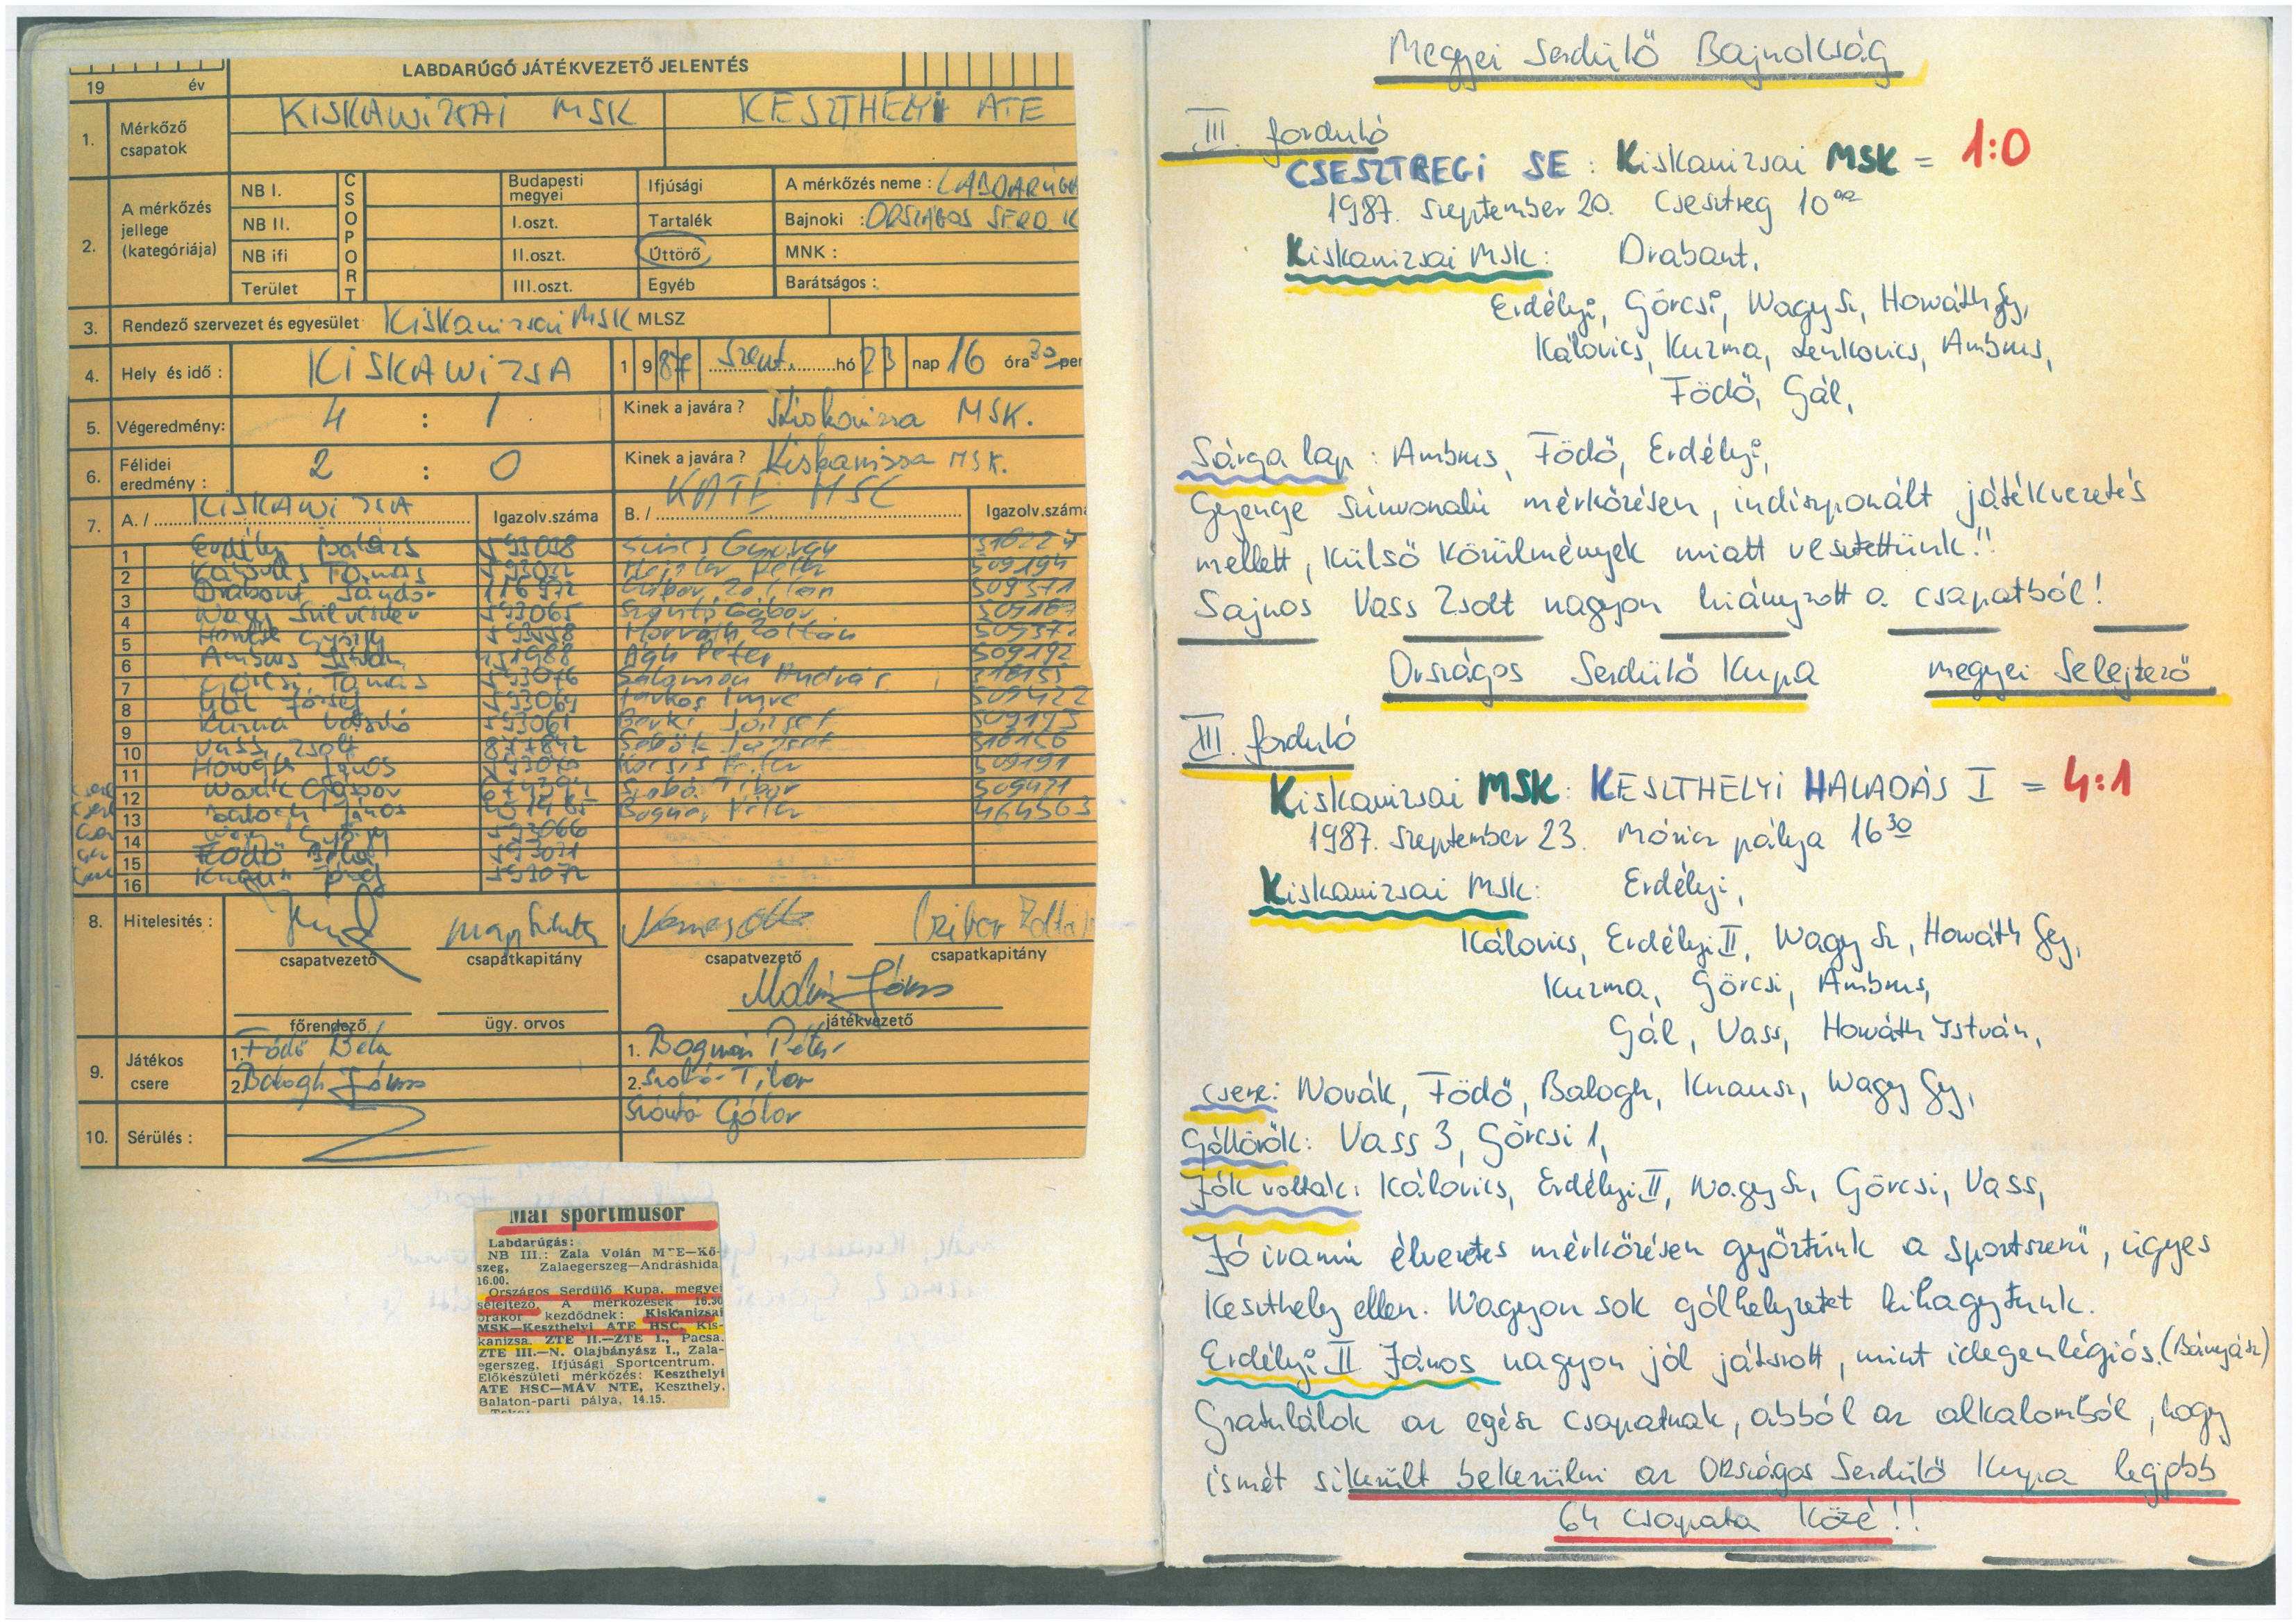 19 év
LABDARÚGÓ JÁTÉKVEZETŐ JELENTÉS
1. Mérkőző csapatok
KISKANIZSAI MSK
KESZTHELYI ATE
2. A mérkőzés jellege (kategóriája)
NB I.
NB II.
NB ifi
Terület
CSOPORT
Budapesti megyei
I.oszt.
II.oszt.
III.oszt.
Ifjúsági
Tartalék
Úttörő
Egyéb
A mérkőzés neme : LABDARÚGÁ
Bajnoki : ORSZÁGOS SERD. K
MNK :
Barátságos :
3. Rendező szervezet és egyesület: Kiskanizsai MSK MLSZ
4. Hely és idő : KISKANIZSA 1987 Szept. hó 23 nap 16 óra 30 per
5. Végeredmény: 4 : 1 Kinek a javára ? Kiskanizsa MSK.
6. Félidei eredmény : 2 : 0 Kinek a javára ? Kiskanizsa MSK.
7. A./ KISKANIZSA Igazolv.száma B./ KATE HSC Igazolv.szám
1 Erdélyi Balázs 593098
2 Kálovics Tamás
3 Drabant Sándor 116972 Czibor Zoltán 509371
4 Nagy Szilveszter 593065 Szántó Gábor
5 Horváth György Horváth Zoltán
6 Ambrus István 451988 Ágh Péter 509192
7 Görcsi Tamás 593076 Salamon András 318155
8 Gál József 593069 Farkas Imre 509422
9 Kuzma László 593061 Berki József 509193
10 Vass Zsolt 877842 Sebők József 318156
11 Horváth János Kocsis Péter 509191
12 Novák Gáspár Szabó Tibor 509421
13 Balogh János Bognár Péter 464563
14 Nagy György 593066
15 Födő Béla 593071
16 Knausz 593072
8. Hitelesítés :
csapatvezető
Nagy Szilveszter
csapatkapitány
Nemes Ottó
csapatvezető
Czibor Zoltán
csapatkapitány
főrendező
ügy. orvos
játékvezető
9. Játékos csere
1. Födő Béla
2. Balogh János
1. Bognár Péter
2. Szabó Tibor
Szántó Gábor
10. Sérülés :
Mai sportműsor
Labdarúgás:
NB III.: Zala Volán MTE—Kő-
szeg, Zalaegerszeg—Andráshida
16.00.
Országos Serdülő Kupa, megyei
selejtező. A mérkőzések 16.30
órakor kezdődnek: Kiskanizsai
MSK—Keszthelyi ATE HSC, Kis-
kanizsa. ZTE II.—ZTE I., Pacsa.
ZTE III.—N. Olajbányász I., Zala-
egerszeg, Ifjúsági Sportcentrum.
Előkészületi mérkőzés: Keszthelyi
ATE HSC—MÁV NTE, Keszthely,
Balaton-parti pálya, 14.15.
Megyei Serdülő Bajnokság
III. forduló
CSESZTREGI SE : Kiskanizsai MSK = 1:0
1987. szeptember 20. Csesztreg 10 00
Kiskanizsai MSK: Drabant,
Erdélyi, Görcsi, Nagy Sz, Horváth Gy,
Kálovics, Kuzma, Lenkovics, Ambrus,
Födő, Gál,
Sárga lap : Ambrus, Födő, Erdélyi,
Gyenge színvonalú mérkőzésen, indiszponált játékvezetés
mellett, külső körülmények miatt vesztettünk!!
Sajnos Vass Zsolt nagyon hiányzott a csapatból!
Országos Serdülő Kupa megyei selejtező
III. forduló
Kiskanizsai MSK: KESZTHELYI HALADÁS I = 4:1
1987. szeptember 23. Móricz pálya 16 30
Kiskanizsai MSK: Erdélyi,
Kálovics, Erdélyi II, Nagy Sz, Horváth Gy,
Kuzma, Görcsi, Ambrus,
Gál, Vass, Horváth István,
csere: Novák, Födő, Balogh, Knausz, Nagy Gy,
Góllövők: Vass 3, Görcsi 1,
Jók voltak: Kálovics, Erdélyi II, Nagy Sz, Görcsi, Vass,
Jó iramú élvezetes mérkőzésen győztünk a sportszerű, ügyes
Keszthely ellen. Nagyon sok gólhelyzetet kihagytunk.
Erdélyi II János nagyon jól játszott, mint idegenlégiós. (Bányász)
Gratulálok az egész csapatnak, abból az alkalomból, hogy
ismét sikerült bekerülni az Országos Serdülő Kupa legjobb
64 csapata közé!!